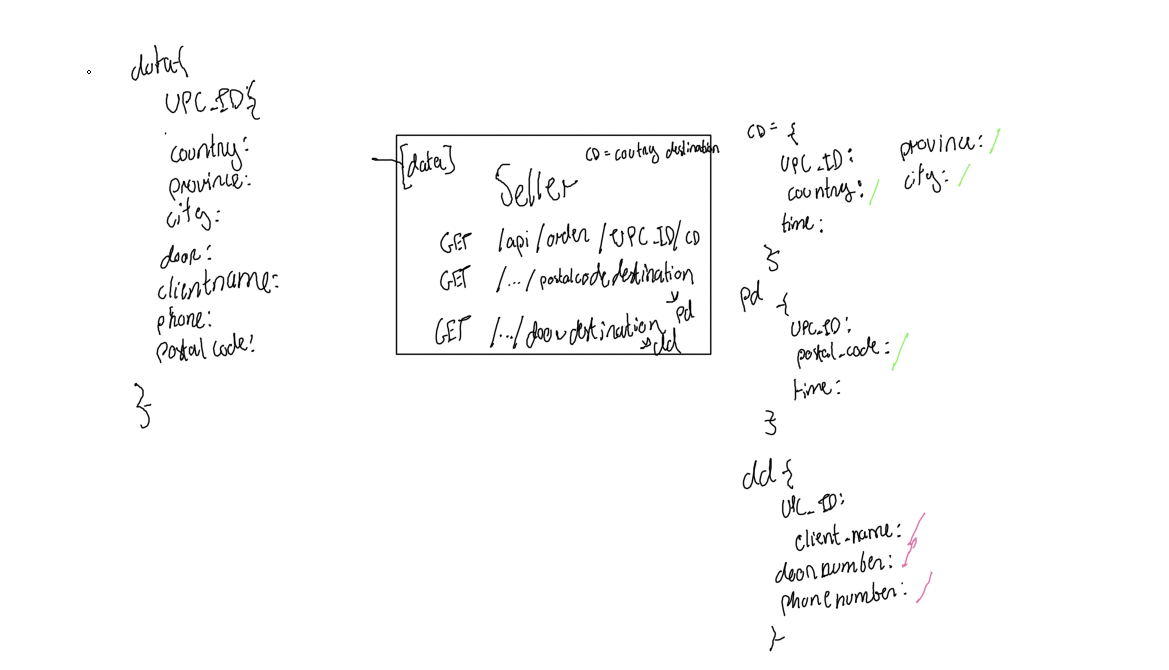 data{
UPC_ID{
country:
province:
city:
door:
clientname:
phone:
postal code:
}
[data]
CD = coutry destination
Seller
GET /api/order/UPC_ID/CD
GET /.../postalcodedestination
pd
GET /.../doordestination
dd
CD = {
UPC_ID:
country:
time:
province:
city:
}
pd {
UPC_ID:
postal_code:
time:
}
dd {
UPC_ID:
client_name:
doornumber:
phonenumber:
}